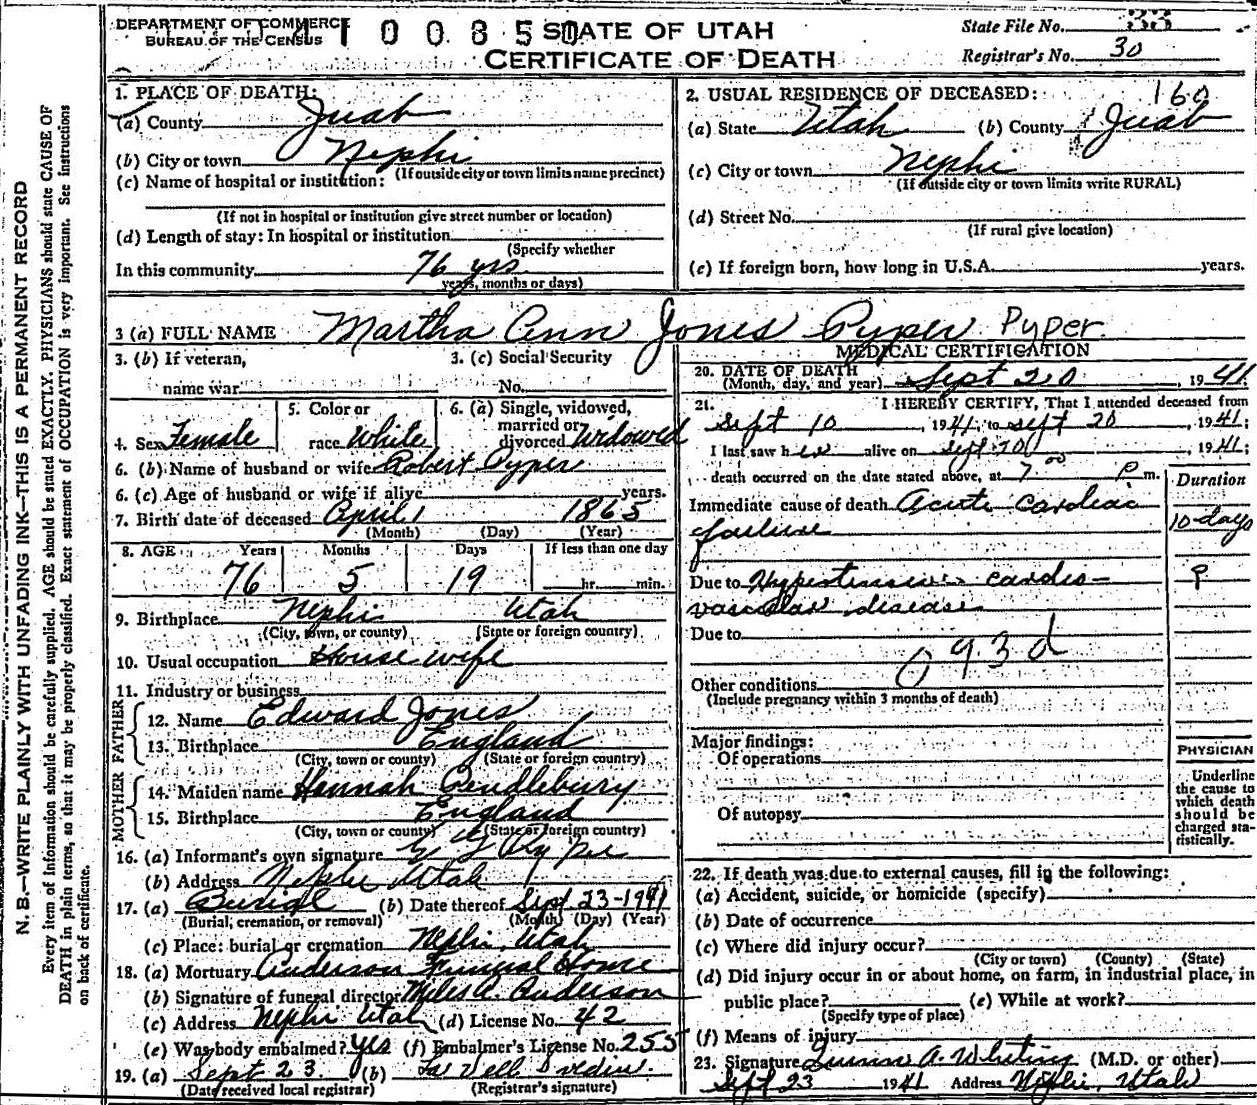 DEPARTMENT OF COMMERCE
BUREAU OF THE CENSUS
STATE OF UTAH
CERTIFICATE OF DEATH
State File No. 33
Registrar's No. 30
N. B.—WRITE PLAINLY WITH UNFADING INK—THIS IS A PERMANENT RECORD
Every item of information should be carefully supplied. AGE should be stated EXACTLY. PHYSICIANS should state CAUSE OF
DEATH in plain terms, so that it may be properly classified. Exact statement of OCCUPATION is very important. See instructions
on back of certificate.
1. PLACE OF DEATH:
(a) County Juab
(b) City or town Nephi
(If outside city or town limits name precinct)
(c) Name of hospital or institution:
(If not in hospital or institution give street number or location)
(d) Length of stay: In hospital or institution
(Specify whether
In this community 76 yrs
years, months or days)
2. USUAL RESIDENCE OF DECEASED: 160
(a) State Utah (b) County Juab
(c) City or town Nephi
(If outside city or town limits write RURAL)
(d) Street No.
(If rural give location)
(e) If foreign born, how long in U.S.A. years.
3 (a) FULL NAME Martha Ann Jones Pyper Pyper
3. (b) If veteran,
name war
3. (c) Social Security
No.
4. Sex Female
5. Color or
race White
6. (a) Single, widowed,
married or
divorced Widowed
6. (b) Name of husband or wife Robert Pyper
6. (c) Age of husband or wife if alive years.
7. Birth date of deceased April 1 1865
(Month) (Day) (Year)
8. AGE Years Months Days If less than one day
76 5 19 hr. min.
9. Birthplace Nephi Utah
(City, town, or county) (State or foreign country)
10. Usual occupation House wife
11. Industry or business
FATHER
12. Name Edward Jones
13. Birthplace England
(City, town or county) (State or foreign country)
MOTHER
14. Maiden name Hannah Pendlebury
15. Birthplace England
(City, town or county) (State or foreign country)
16. (a) Informant's own signature Pyper
(b) Address Nephi Utah
17. (a) Burial (b) Date thereof Sept 23-1941
(Burial, cremation, or removal) (Month) (Day) (Year)
(c) Place: burial or cremation Nephi, Utah
18. (a) Mortuary Anderson Funeral Home
(b) Signature of funeral director Miles A. Anderson
(c) Address Nephi Utah (d) License No. 42
(e) Was body embalmed? Yes (f) Embalmer's License No. 255
19. (a) Sept 23 (b)
(Date received local registrar) (Registrar's signature)
MEDICAL CERTIFICATION
20. DATE OF DEATH
(Month, day, and year) Sept 20, 1941;
21. I HEREBY CERTIFY, That I attended deceased from
Sept 10, 1941, to Sept 20, 1941;
I last saw her alive on Sept 20, 1941;
death occurred on the date stated above, at 7 00 P m.
Duration
Immediate cause of death Acute cardiac
failure
10 days
Due to Hypertensive cardio-
vascular disease
?
Due to
093d
Other conditions
(Include pregnancy within 3 months of death)
Major findings:
Of operations
Of autopsy
PHYSICIAN
Underline
the cause to
which death
should be
charged sta-
tistically.
22. If death was due to external causes, fill in the following:
(a) Accident, suicide, or homicide (specify)
(b) Date of occurrence
(c) Where did injury occur?
(City or town) (County) (State)
(d) Did injury occur in or about home, on farm, in industrial place, in
public place? (e) While at work?
(Specify type of place)
(f) Means of injury
23. Signature Quinn A. Whiting (M.D. or other)
Sept 23 1941 Address Nephi, Utah